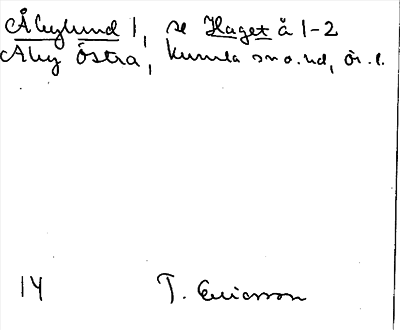 Åbylund 1, se Haget å 1-2
Åby Östra, Kumla sn o. hd, Ör. l.
14 T. Ericsson